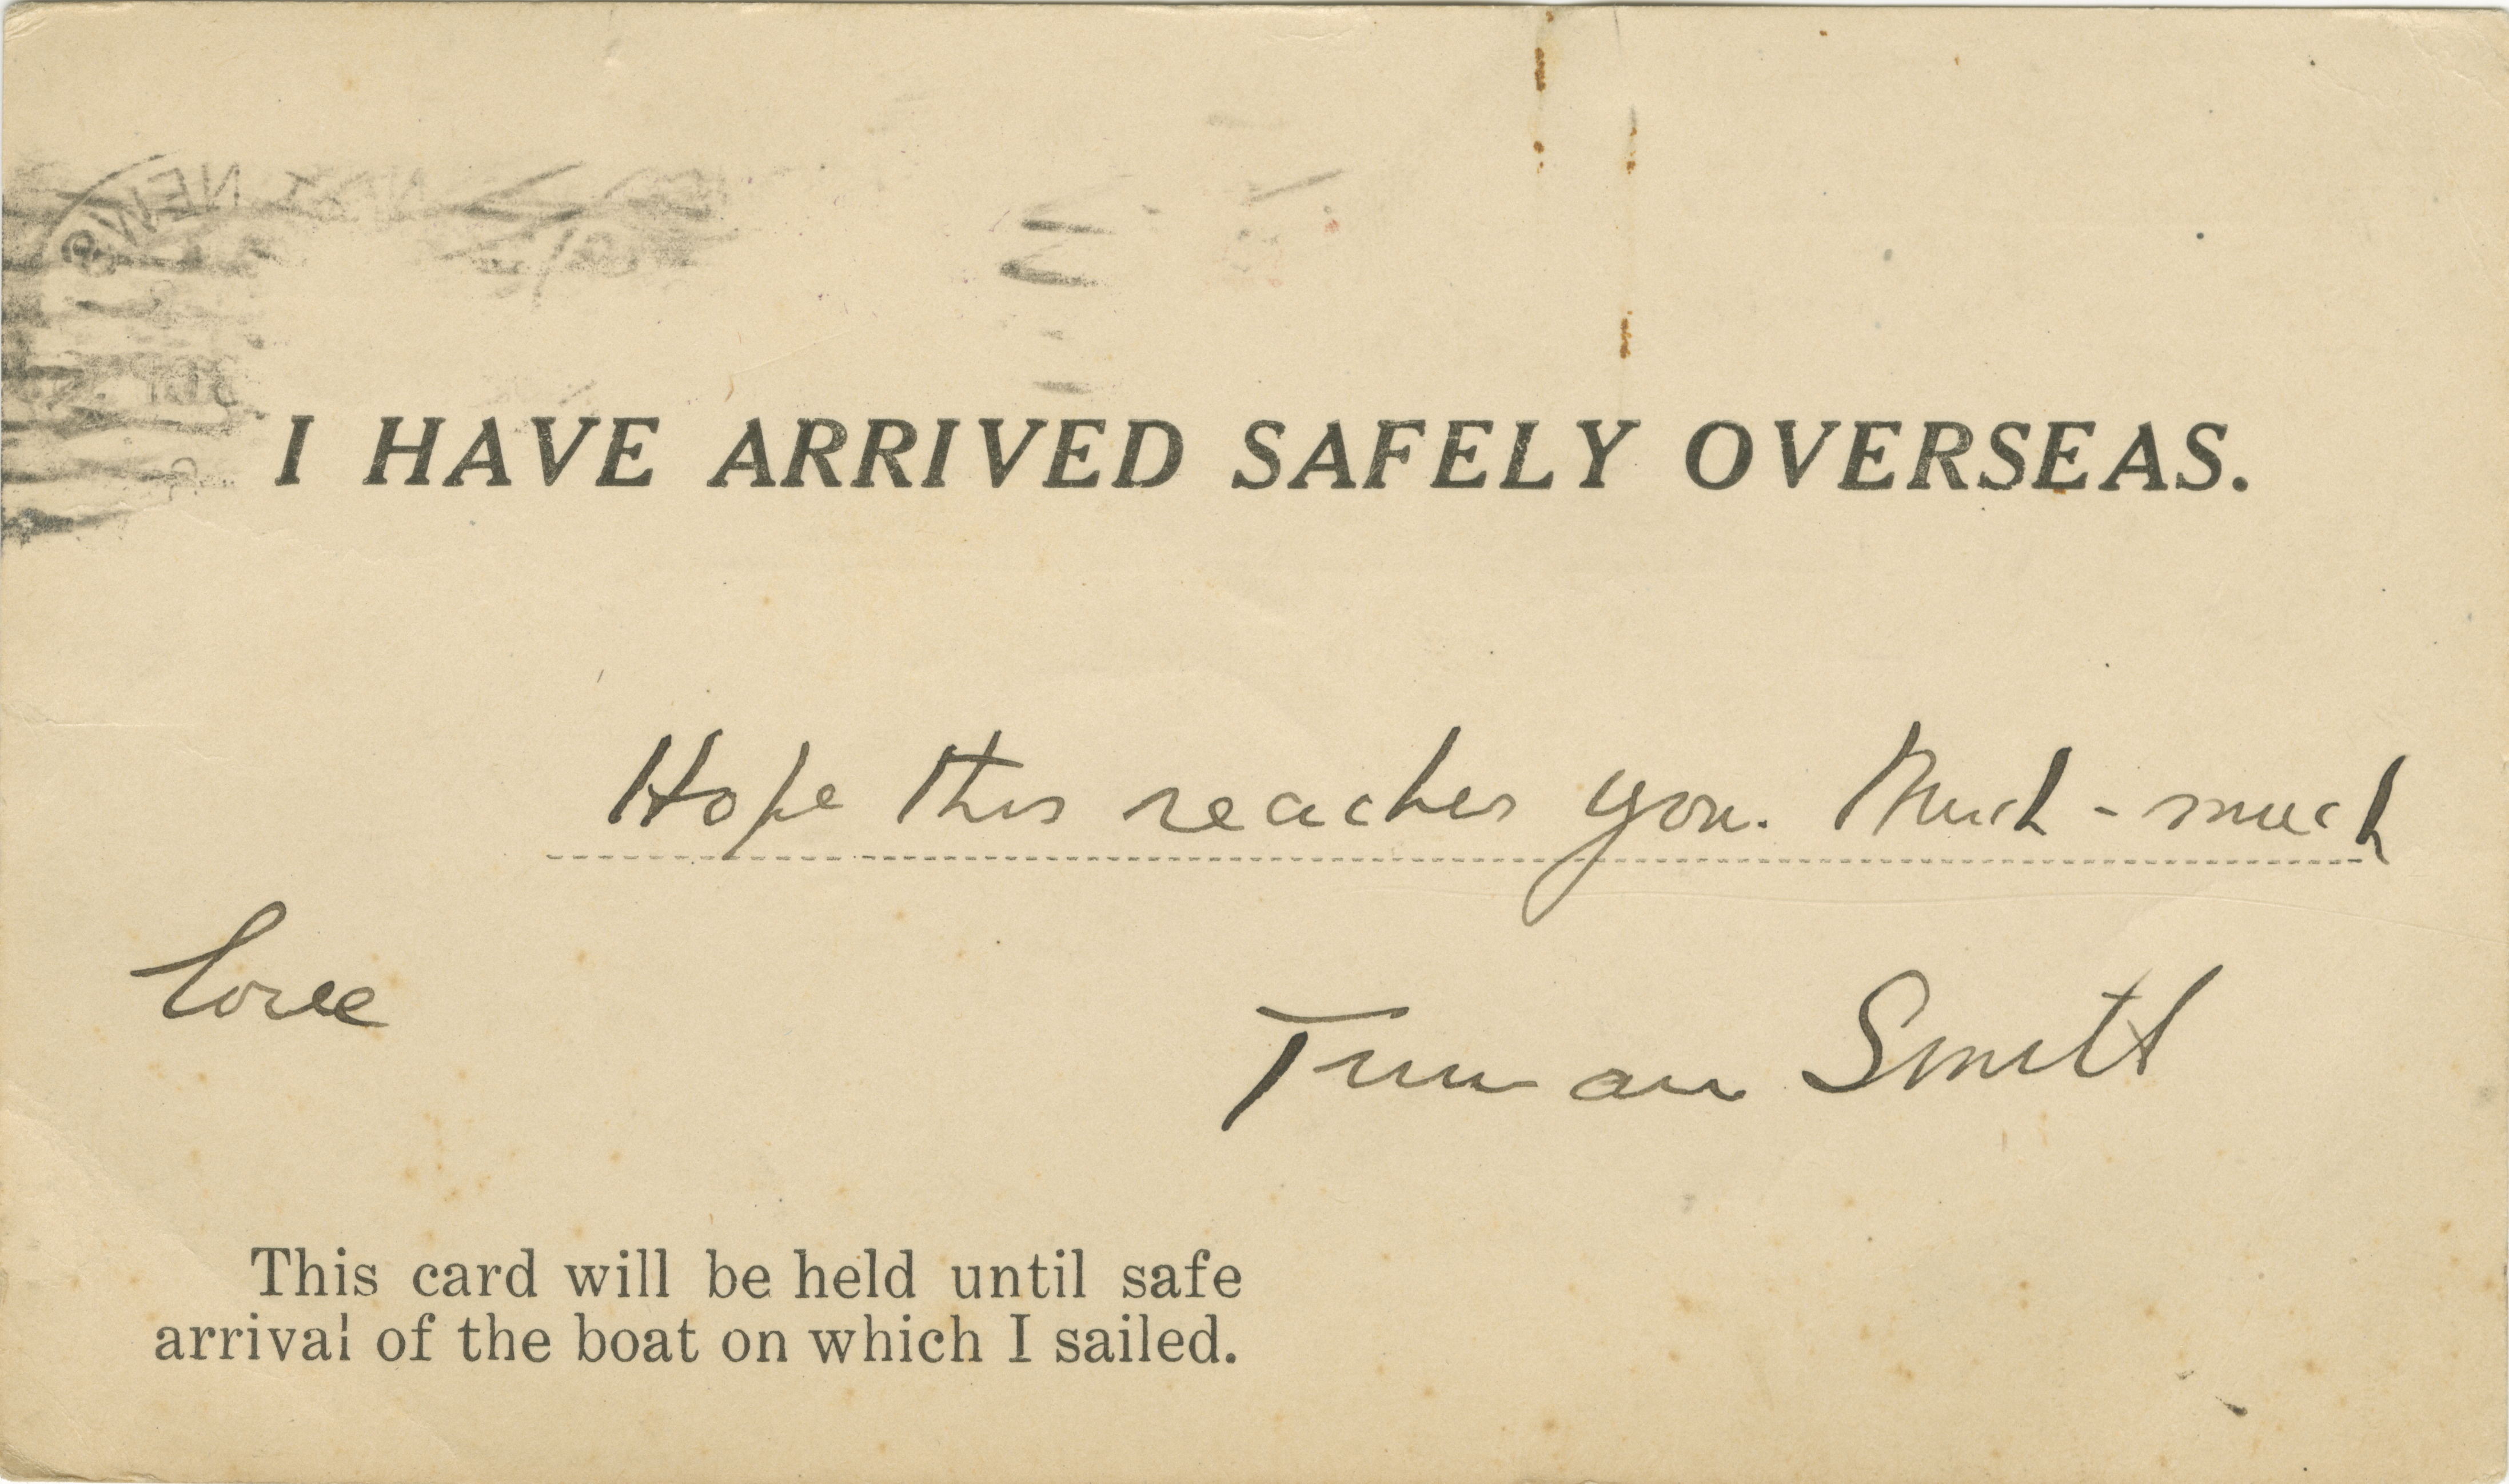 I HAVE ARRIVED SAFELY OVERSEAS.
Hope this reaches you. Much - much
love
Truman Smith
This card will be held until safe
arrival of the boat on which I sailed.